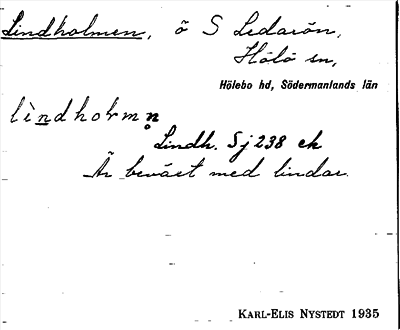 Lindholmen, ö S Ledarön,
Hölö sn,
Hölebo hd, Södermanlands län
lìndholmn̥
Lindh. Sj 238 ek
Är beväxt med lindar.
KARL-ELIS NYSTEDT 1935